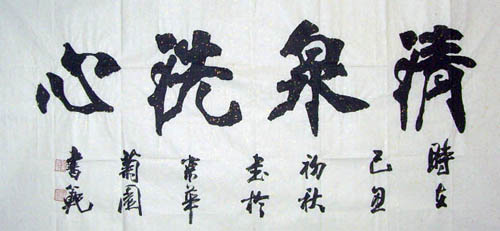 清泉洗心
時在
己丑
初秋
書於
紫華
菊園
書範